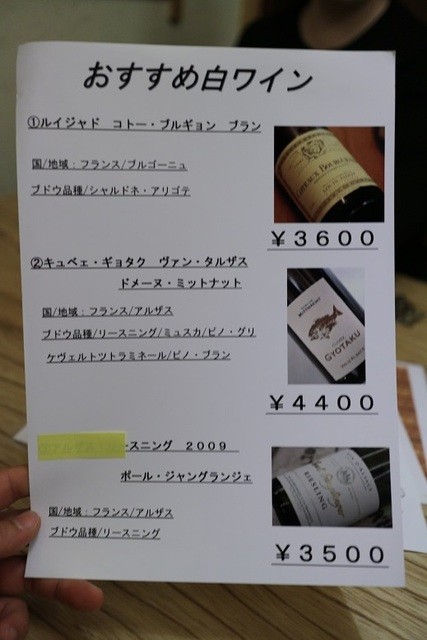 おすすめ白ワイン
①ルイジャド　コトー・ブルギョン　ブラン
国/地域：フランス/ブルゴーニュ
ブドウ品種/シャルドネ・アリゴテ
￥３６００
②キュベェ・ギョタク　ヴァン・タルザス
ドメーヌ・ミットナット
国/地域：フランス/アルザス
ブドウ品種/リースニング/ミュスカ/ピノ・グリ
ケヴェルトツトラミネール/ピノ・ブラン
GYOTAKU
￥４４００
ースニング　２００９
ポール・ジャングランジェ
国/地域：フランス/アルザス
ブドウ品種/リースニング
RIESLING
￥３５００